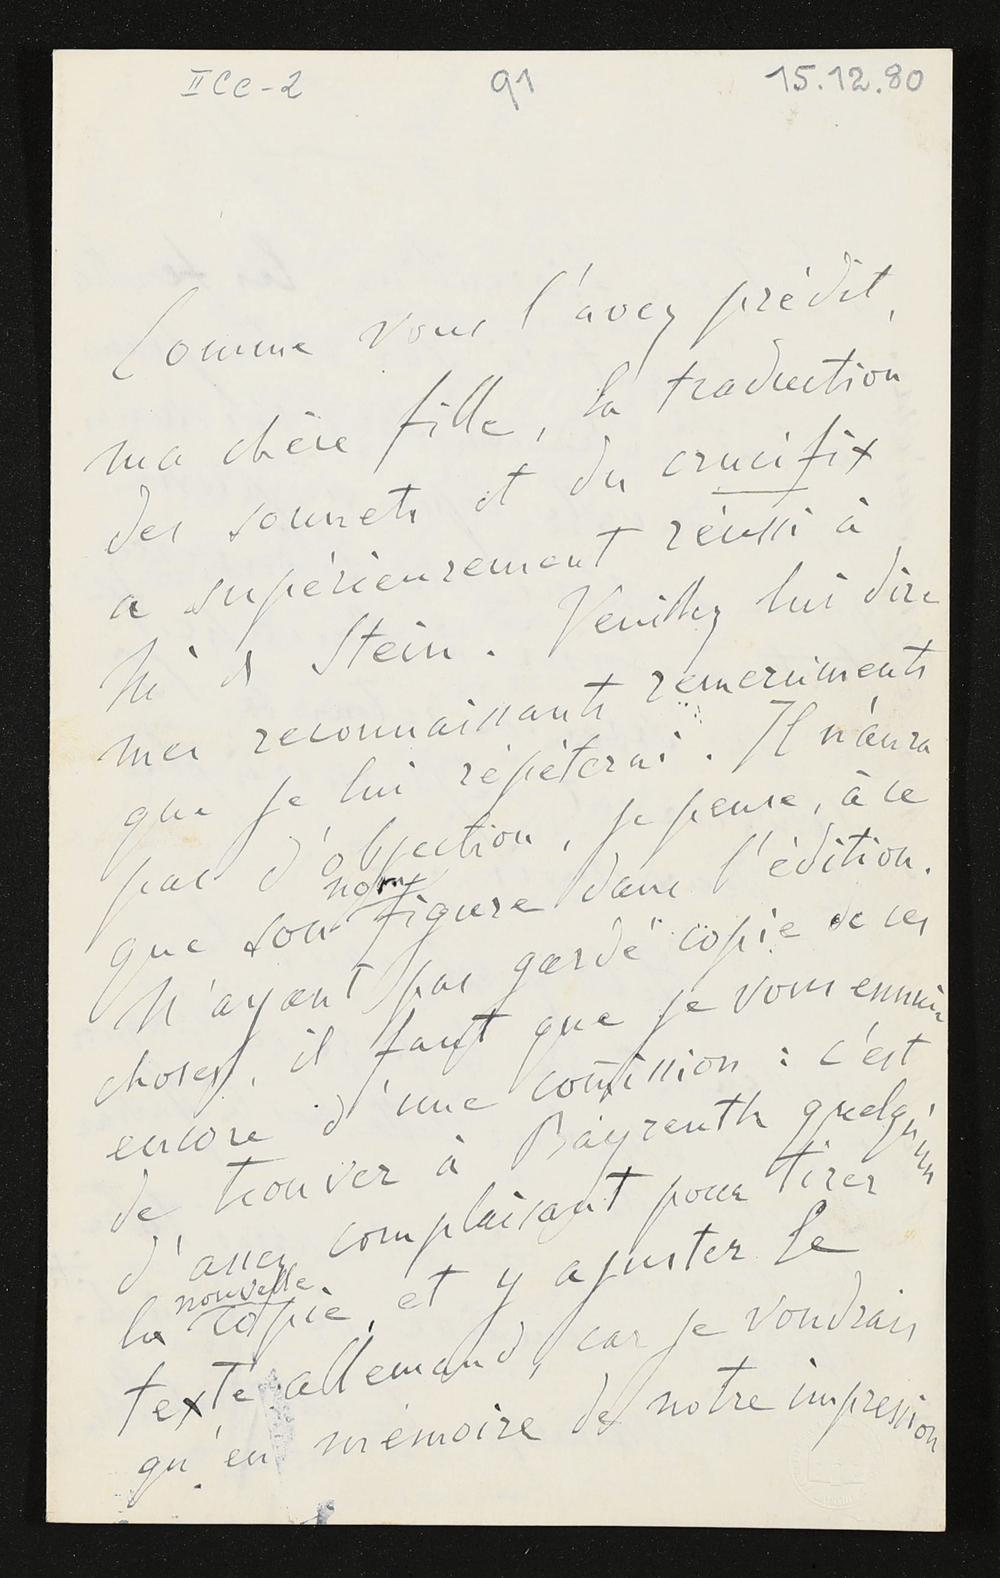 IICC-2 91 15.12.80
Comme vous l'avez prédit,
ma chère fille, la traduction
des sonnets et du crucifix
a supérieurement réussi à
Mr de Stein. Veuillez lui dire
mes reconnaissants remercîments
que je lui répèterai. Il n'aura
pas d'objection, je pense, à ce
que son nom figure dans l'édition.
N'ayant pas gardé copie de ces
choses, il faut que je vous ennuie
encore d'une comission : c'est
de trouver à Bayreuth quelqu'un
d'assez complaisant pour tirer
la nouvelle copie, et y ajuster le
texte allemand, car je voudrais
qu'en mémoire de notre impression